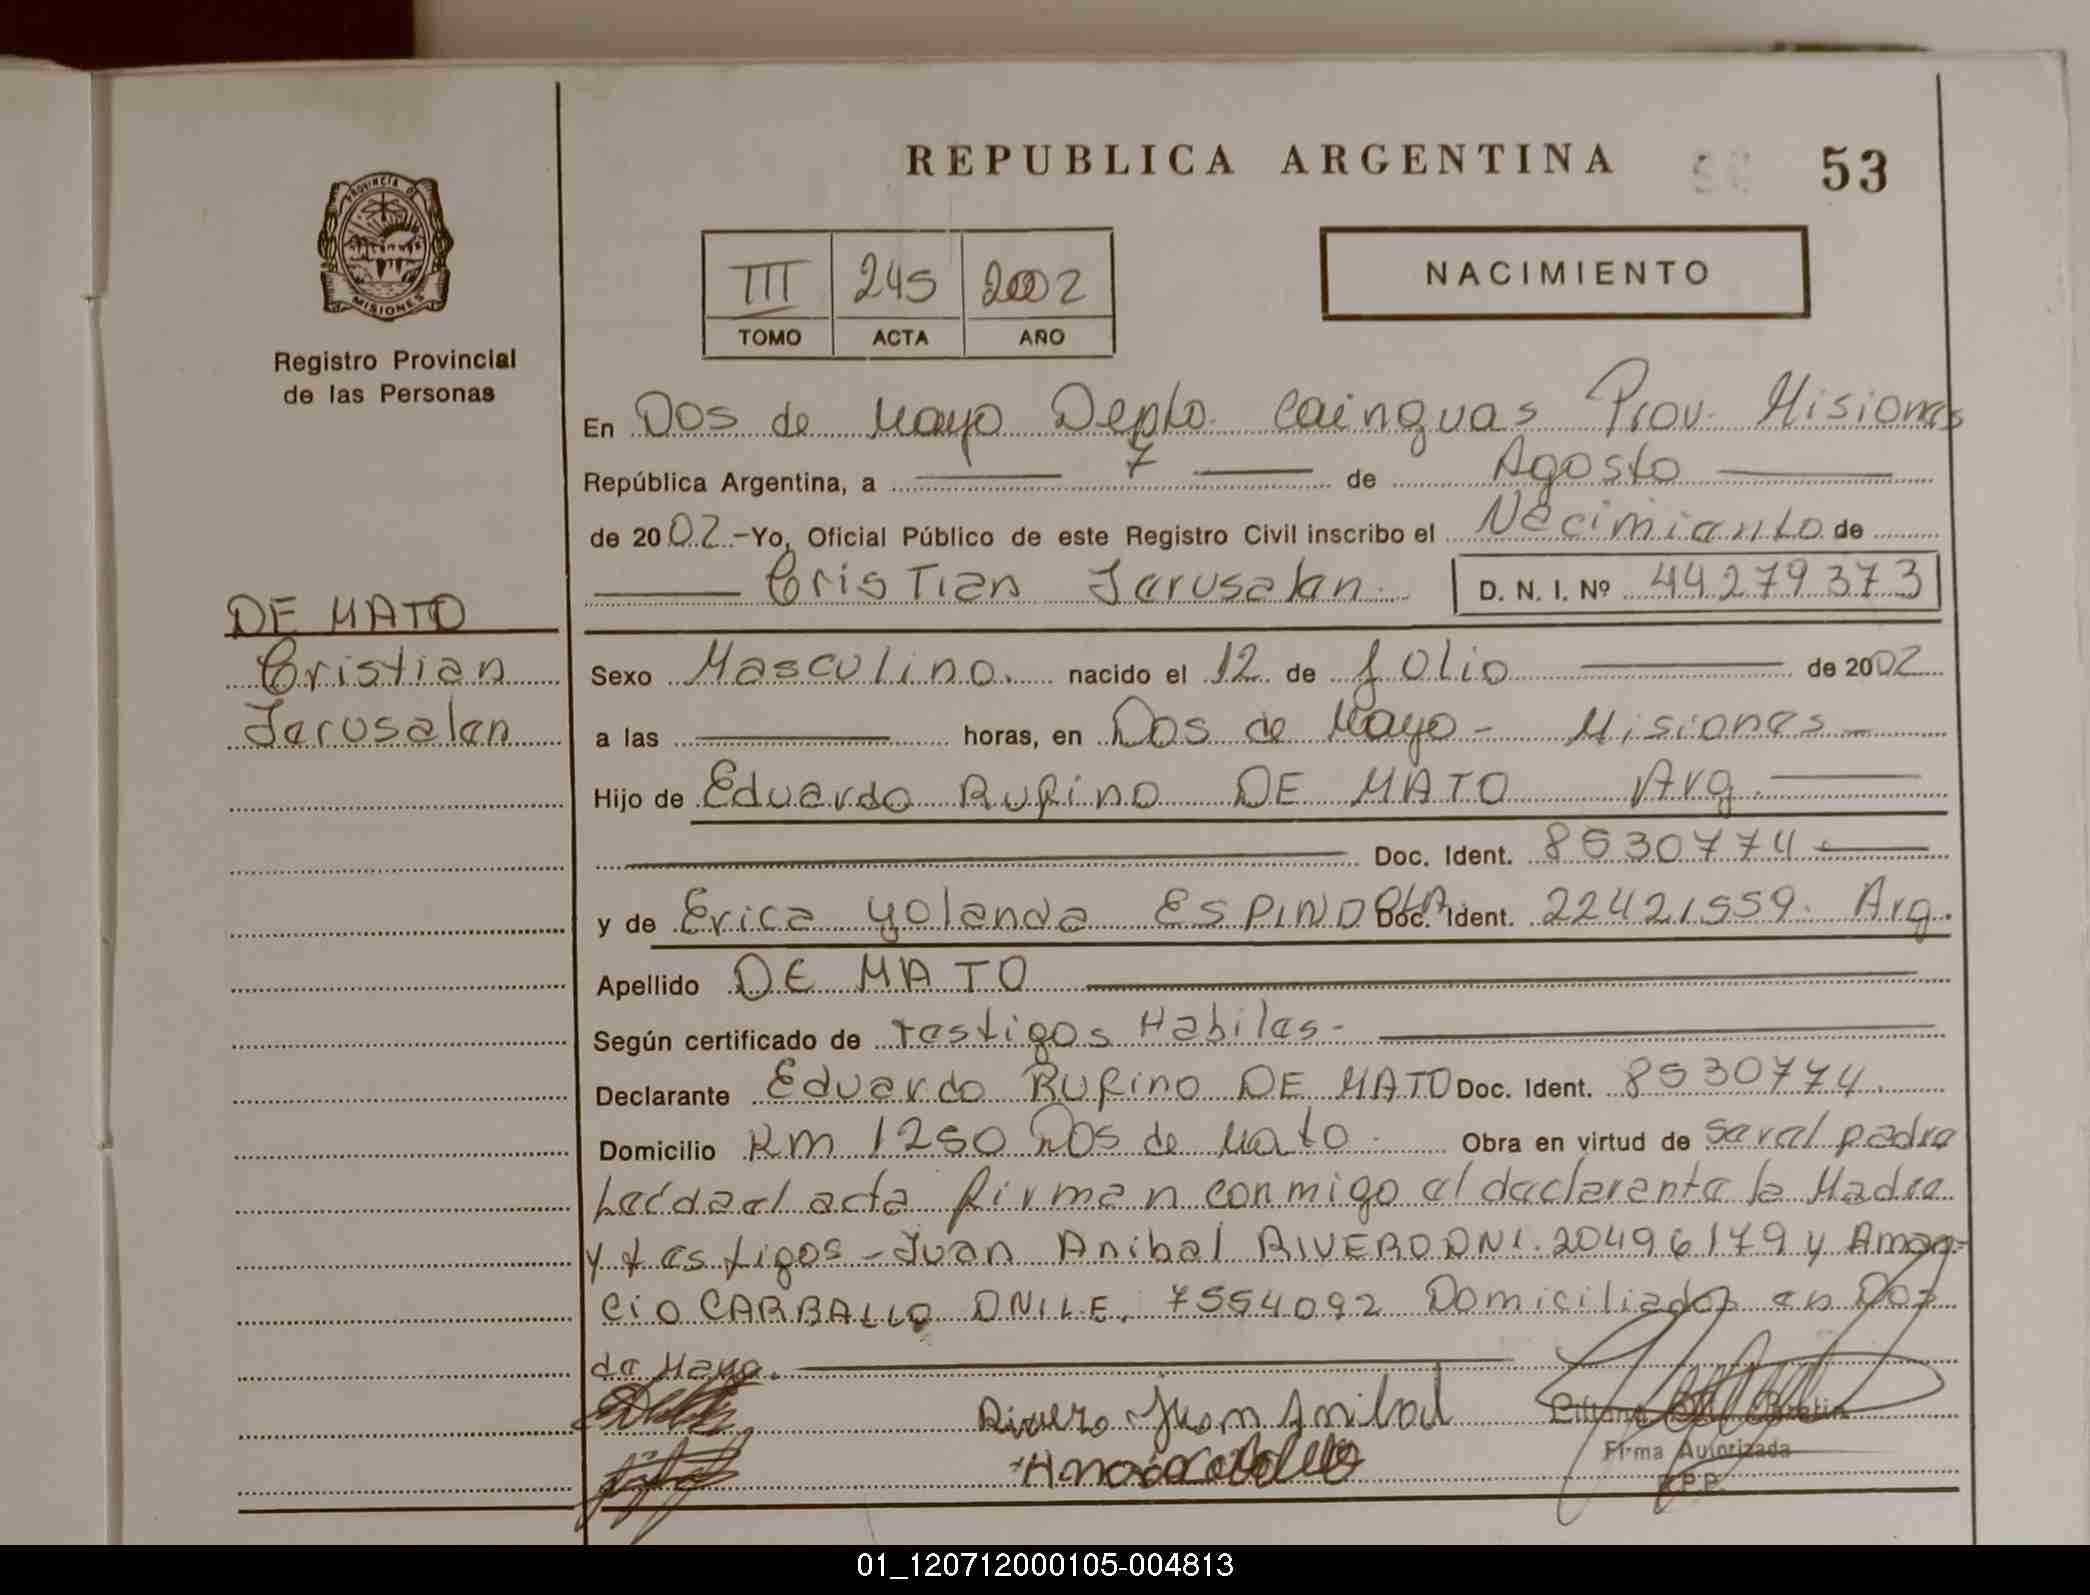 REPUBLICA ARGENTINA 53
PROVINCIA DE
MISIONES
Registro Provincial
de las Personas
III 245 2002
TOMO ACTA AÑO
NACIMIENTO
En Dos de Mayo Depto. Cainguas Prov. Misiones
República Argentina, a 7 de Agosto
de 2002.-Yo, Oficial Público de este Registro Civil inscribo el Nacimiento de
Cristian Jerusalen. D. N. I. Nº 44279373
DE MATO
Cristian
Jerusalen
Sexo Masculino. nacido el 12 de Julio de 2002
a las horas, en Dos de Mayo - Misiones -
Hijo de Eduardo Rufino DE MATO Arg.
Doc. Ident. 8530774.
y de Erica Yolanda ESPINDOLA Doc. Ident. 22421559. Arg.
Apellido DE MATO
Según certificado de Testigos Habiles -
Declarante Eduardo Rufino DE MATO Doc. Ident. 8530774.
Domicilio Km 1250 Dos de Mato. Obra en virtud de ser el padre
Leída el acta firman conmigo el declarante la Madre
y testigos - Juan Anibal RIVERO DNI. 20496179 y Aman-
cio CARBALLO DNI LE. 7554092 Domiciliados en Dos
de Mayo.
Rivero Juan Anibal
Firma Autorizada
R.P.P.
01_120712000105-004813